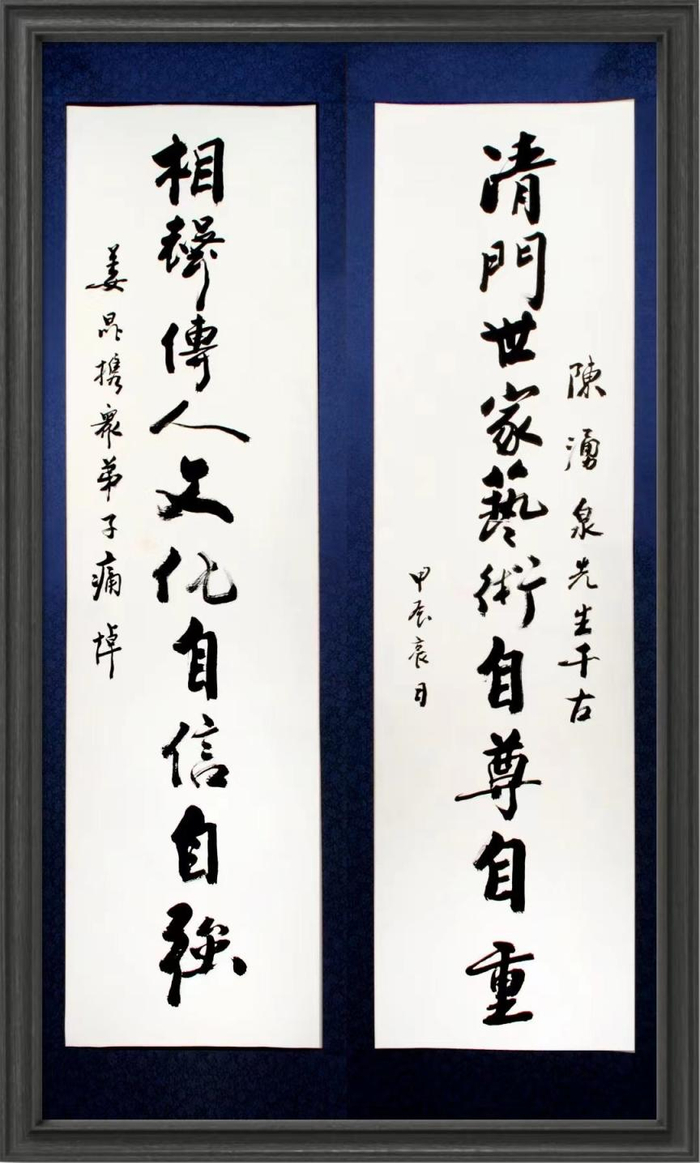 陳湧泉先生千古
清門世家藝術自尊自重
甲辰哀月
相聲傳人文化自信自強
姜昆携衆弟子痛悼